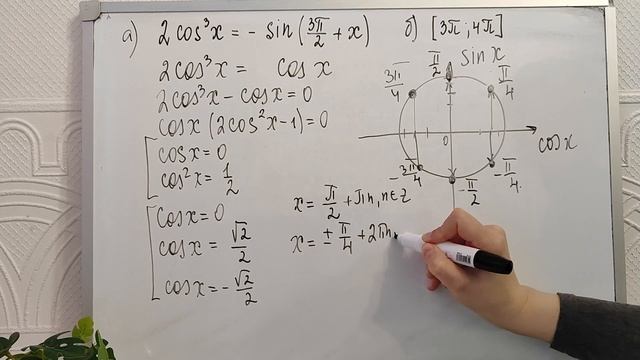 а) 2cos³x = - sin (3π/2 + x) б) [3π; 4π]
2cos³x = cos x
2cos³x - cosx = 0
cosx (2cos²x - 1) = 0
cosx = 0
cos²x = 1/2
cosx = 0
cosx = √2/2
cosx = - √2/2
x = π/2 + πn, n∈Z
x = ± π/4 + 2πn
sin x
π/2
3π/4
π/4
0
cosx
- 3π/4
- π/4
- π/2